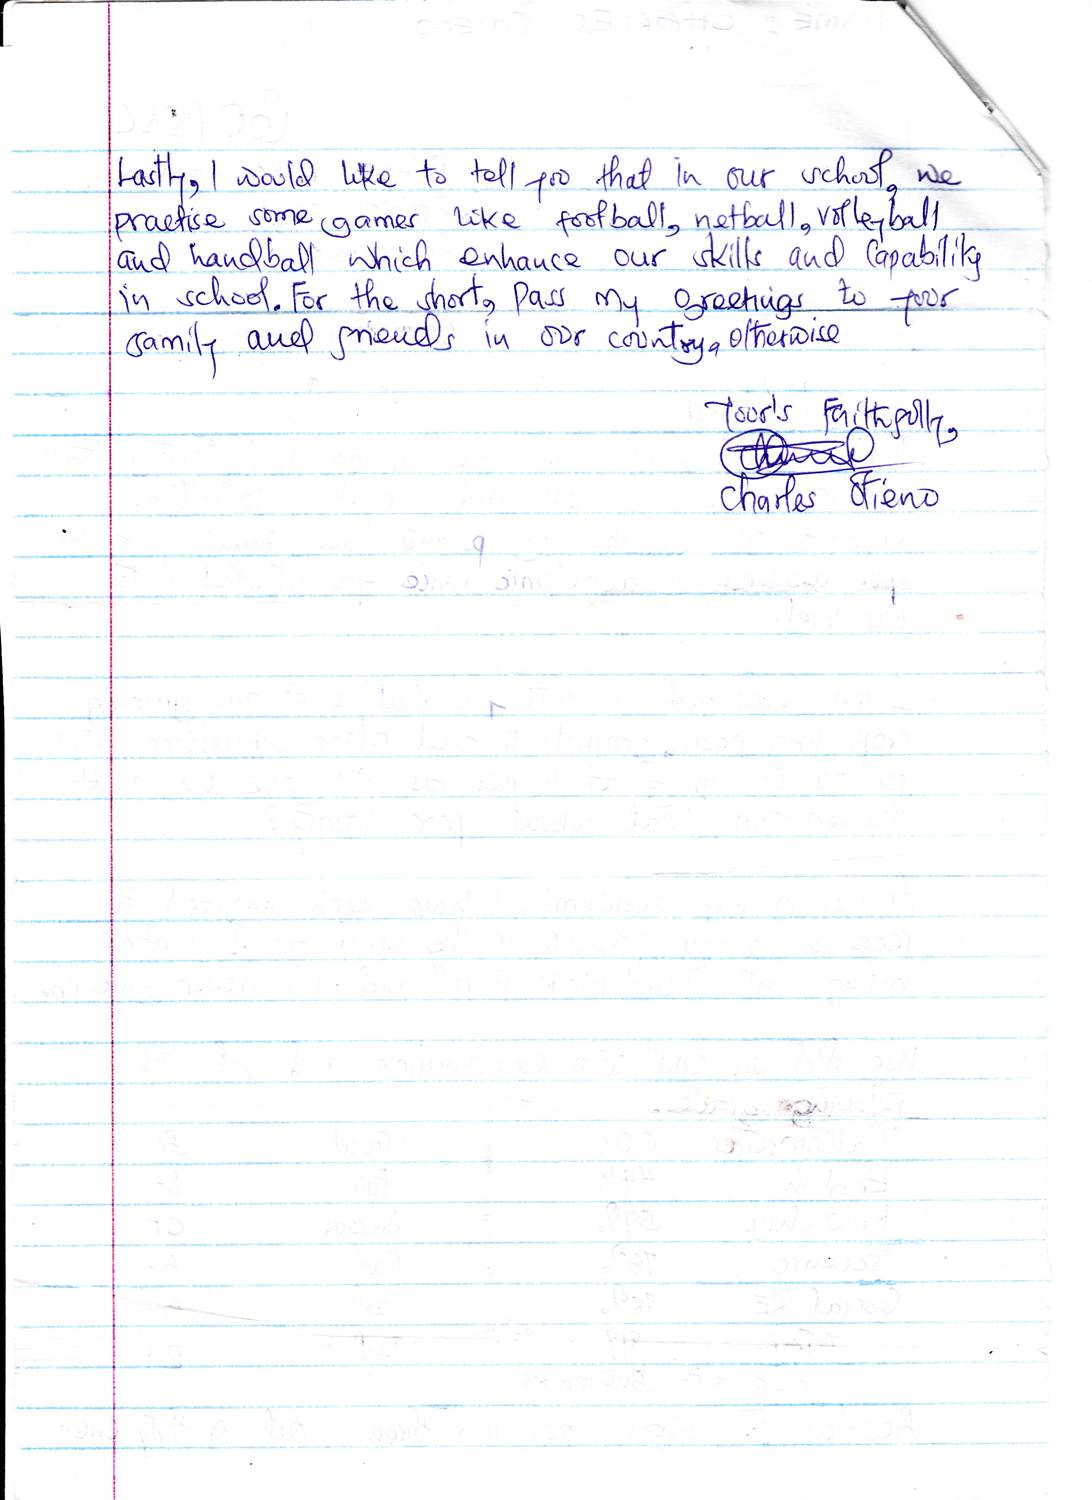 Lastly, I would like to tell you that in our school, we
practise some games like football, netball, volleyball
and handball which enhance our skills and capability
in school. For the short, pass my greetings to your
family and friends in our country, otherwise
Your's Faithfully,
Charles Otieno